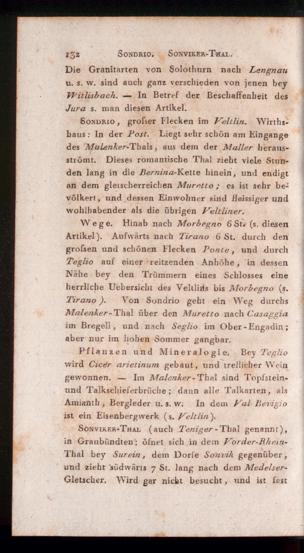 132 SONDRIO. SONVIKER-THAL.
Die Granitarten von Solothurn nach Lengnau
u. s. w. sind auch ganz verschieden von jenen bey
Witlisbach. — In Betref der Beschaffenheit des
Jura s. man diesen Artikel.
SONDRIO, großer Flecken im Veltlin. Wirths-
haus: In der Post. Liegt sehr schön am Eingange
des Malenker-Thals, aus dem der Maller heraus-
strömt. Dieses romantische Thal zieht viele Stun-
den lang in die Bernina-Kette hinein, und endigt
an dem gletscherreichen Muretto; es ist sehr be-
völkert, und dessen Einwohner sind fleissiger und
wohlhabender als die übrigen Veltliner.
Wege. Hinab nach Morbegno 6 St. (s. diesen
Artikel). Aufwärts nach Tirano 6 St. durch den
großen und schönen Flecken Ponte, und durch
Teglio auf einer reitzenden Anhöhe, in dessen
Nähe bey den Trümmern eines Schlosses eine
herrliche Uebersicht des Veltlins bis Morbegno (s.
Tirano). Von Sondrio geht ein Weg durchs
Malenker-Thal über den Muretto nach Casaggia
im Bregell, und nach Seglio im Ober-Engadin;
aber nur im hohen Sommer gangbar.
Pflanzen und Mineralogie. Bey Teglio
wird Cicer arietinum gebaut, und treflicher Wein
gewonnen. — Im Malenker-Thal sind Topfstein-
und Talkschieferbrüche; dann alle Talkarten, als
Amianth, Bergleder u. s. w. In dem Val Bevigio
ist ein Eisenbergwerk (s. Veltlin).
SONVIKER-THAL (auch Teniger-Thal genannt),
in Graubündten; öfnet sich in dem Vorder-Rhein-
Thal bey Surein, dem Dorfe Sonvik gegenüber,
und zieht südwärts 7 St. lang nach dem Medelser-
Gletscher. Wird gar nicht besucht, und ist fast